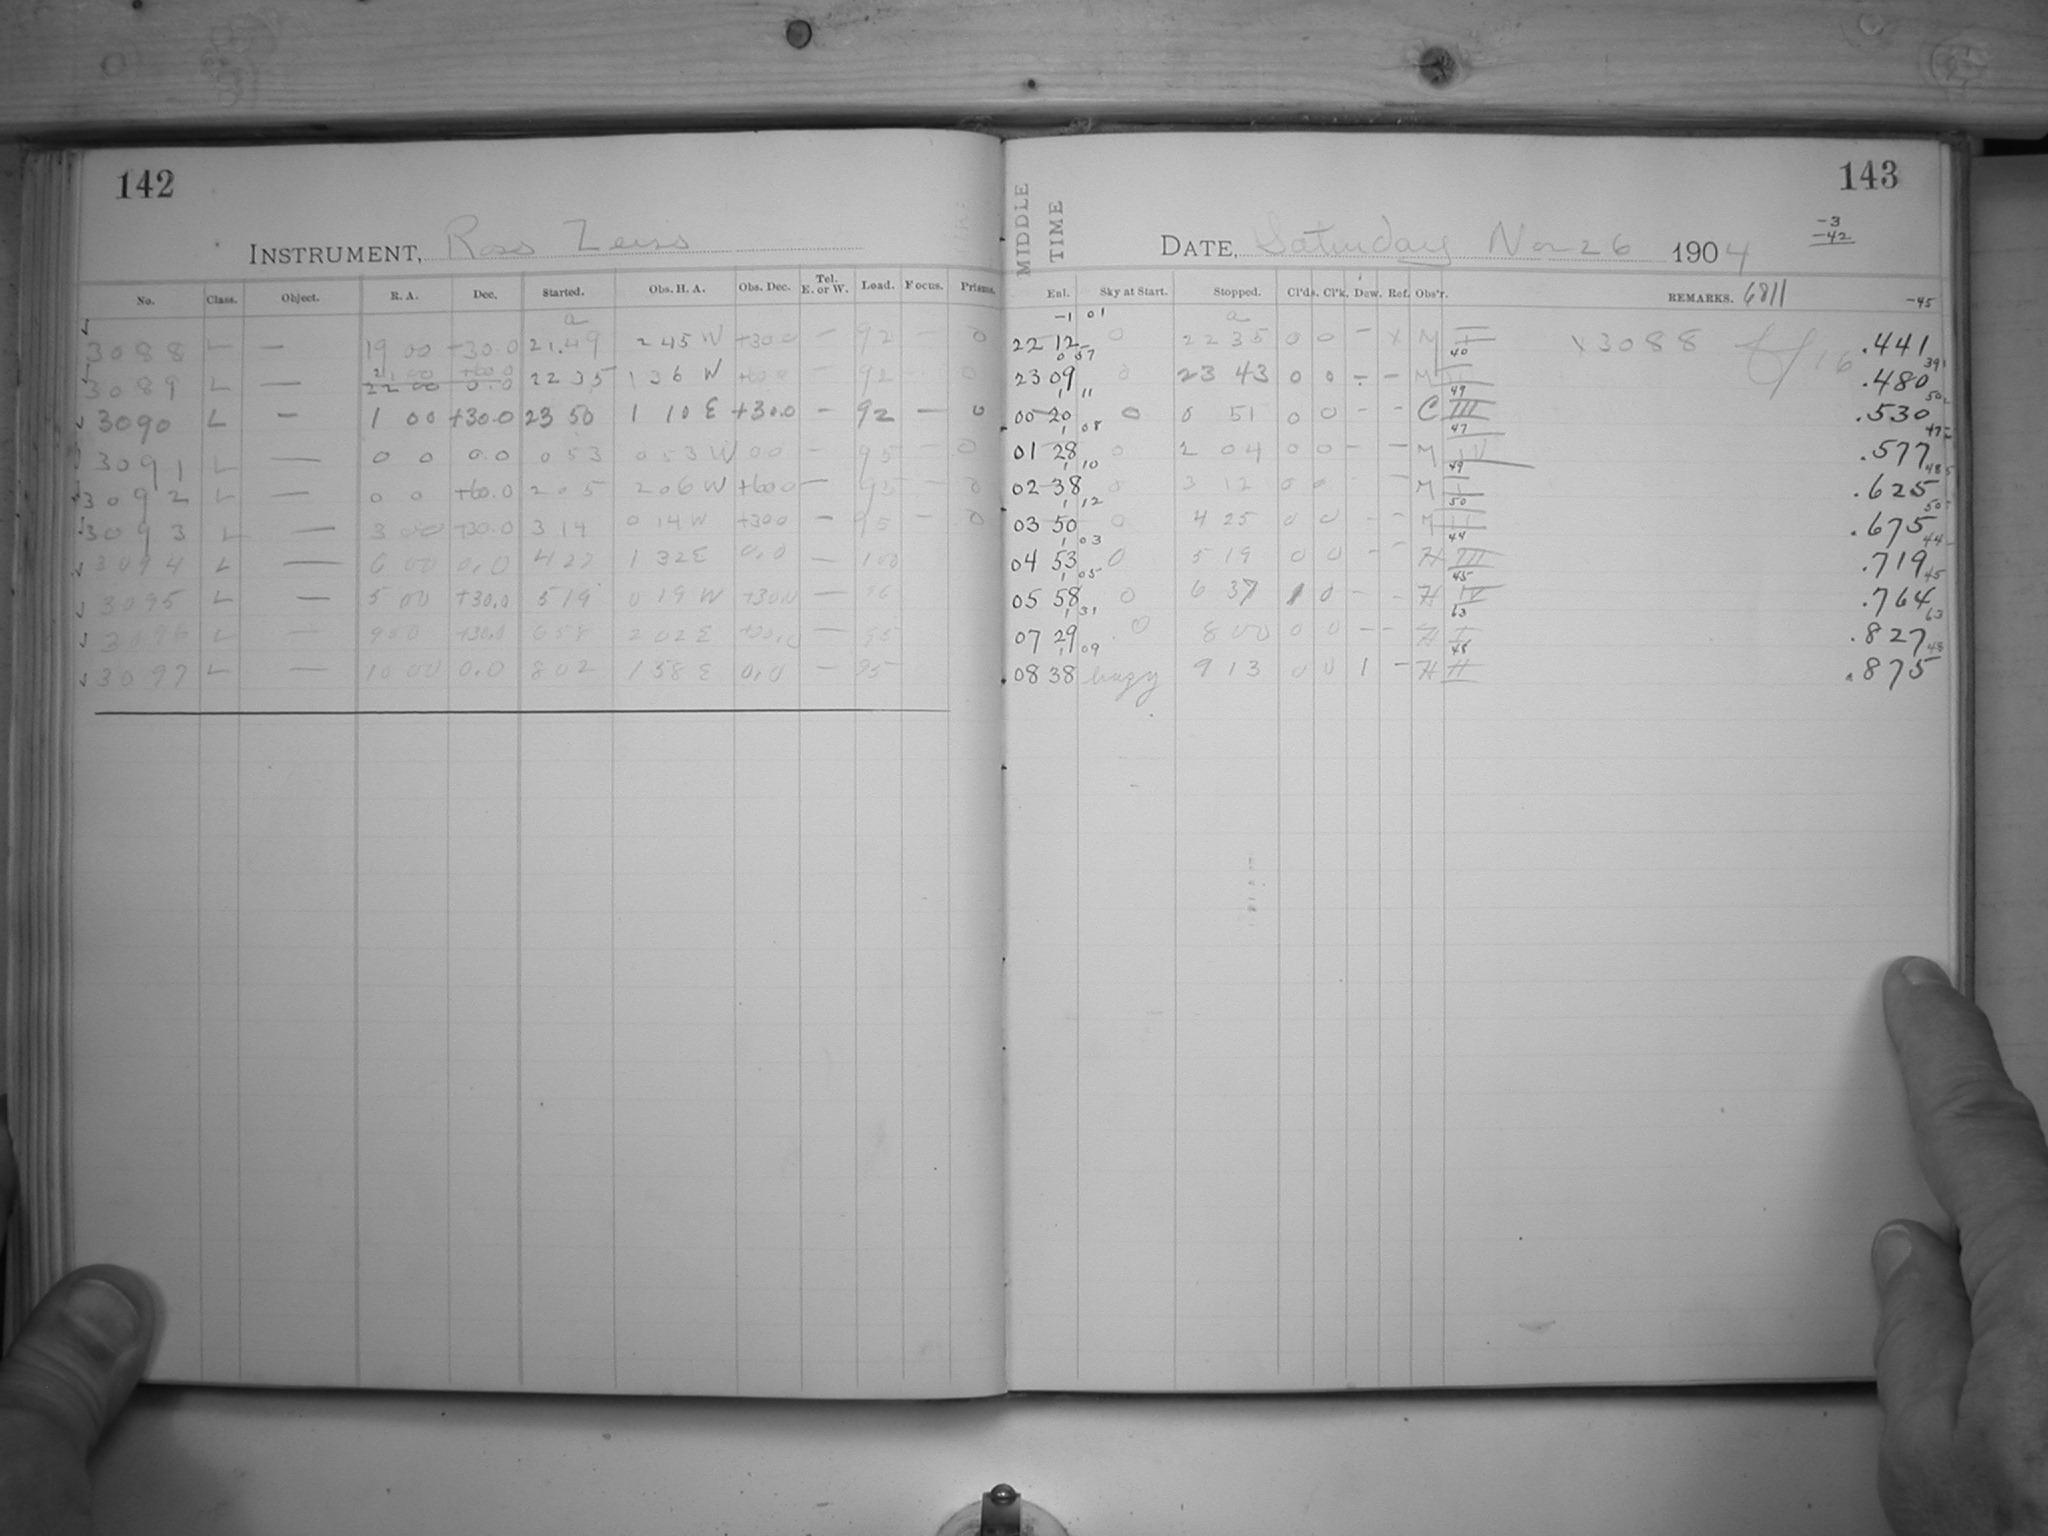 142
INSTRUMENT, Ross Zeiss
No. Class. Object. R. A. Dec. Started. Obs. H. A. Obs. Dec. Tel. E. or W. Load. Focus. Prisms.
a
3088 L — 19 00 +30.0 21.49 2 45 W +30.0 — 92 — 0
21 00 +60.0
3089 L — 22 00 0.0 22 35 1 36 W +60.0 — 92 — 0
3090 L — 1 00 +30.0 23 50 1 10 E +30.0 — 92 — 0
3091 L — 0 0 0.0 0 53 0 53 W 0 0 — 95 — 0
3092 L — 0 0 +60.0 2 05 2 06 W +60 0 — 95 — 0
3093 L — 3 00 +30.0 3 14 0 14 W +30 0 — 95 — 0
3094 L — 6 00 0.0 4 27 1 32 E 0.0 — 100
3095 L — 5 00 +30.0 5 19 0 19 W +30.0 — 96
3096 L — 9 00 +30.0 6 58 2 02 E +30.0 — 95
3097 L — 10 00 0.0 8 02 1 58 E 0.0 — 95
143
MIDDLE TIME
DATE, Saturday Nov 26 1904
-3
-42
Enl. Sky at Start. Stopped. Cl'ds. Cl'k. Dew. Ref. Obs'r. REMARKS. 6811 -45
-1 01 a
22 12 0 22 35 0 0 – x M I x 3088 16 .441
0 57 40 39
23 09 0 23 43 0 0 – – M II .480
1 11 49 50
00 20 0 0 51 0 0 – – C III .530
1 08 47 47
01 28 0 2 04 0 0 – – M IV .577
1 10 49 48
02 38 0 3 12 0 0 – M I .625
1 12 50 50
03 50 0 4 25 0 0 – – M II .675
1 03 44 44
04 53 0 5 19 0 0 – – H III .719
1 05 45 45
05 58 0 6 37 1 0 – – H IV .764
1 31 63 63
07 29 0 8 00 0 0 – – H I .827
1 09 48 48
08 38 hazy 9 13 0 0 1 – H II .875